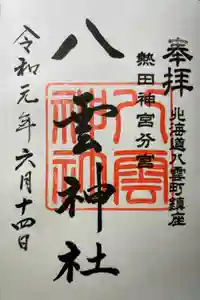 奉拝
北海道八雲町鎮座
熱田神宮分宮
八雲神社
八雲神社
令和元年六月十四日